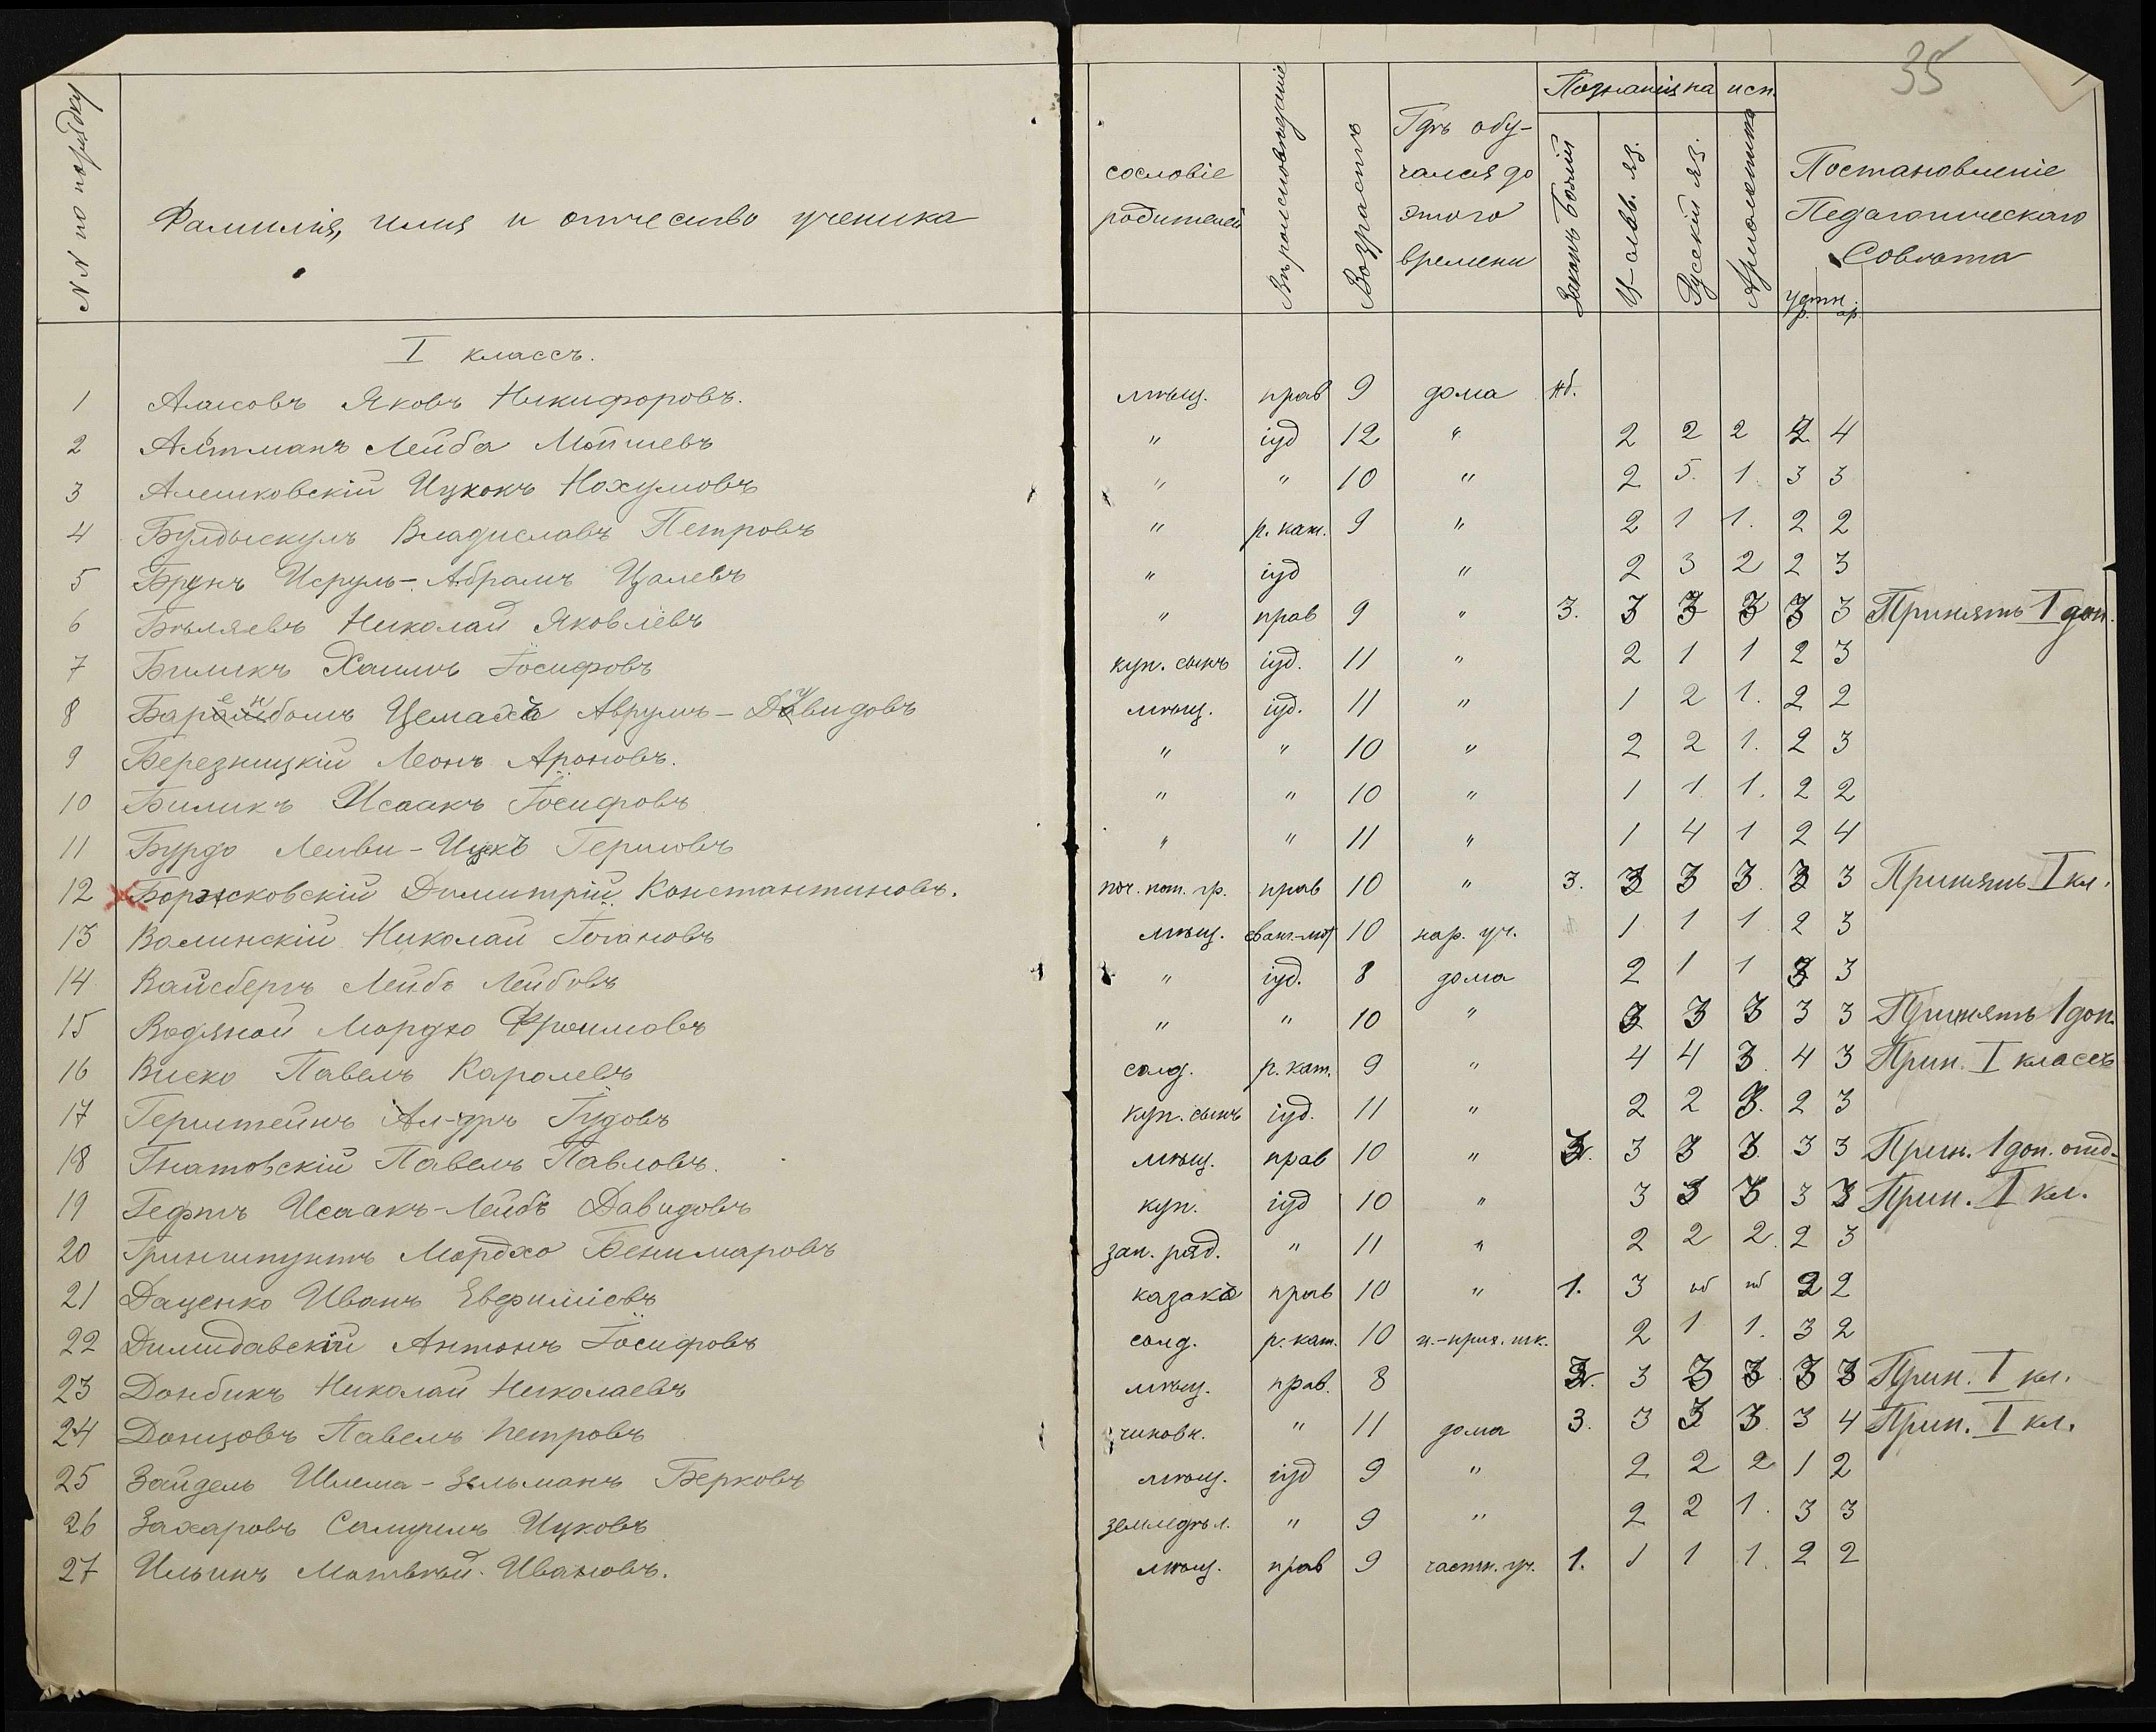 35
№№ по порядку Фамилія, имя и отчество ученика сословіе родителей Вѣроисповѣданіе Возрастъ Гдѣ обучался до этого времени Познанія на исп. Законъ Божій Ц-слав. яз. Русскій яз. Арιѳметика Постановленіе Педагогическаго Совѣта
устн. р. ар.
I классъ.
1 Яковъ Никифоровъ. мѣщ. прав 9 дома нб.
2 Альтманъ Лейба Мойшевъ " іуд 12 " 2 2 2 2 4
3 Алешковскій Ицкокъ Нохумовъ " " 10 " 2 5. 1. 3 3
4 Булдыскулъ Владиславъ Петровъ " р. кат. 9 " 2 1 1. 2 2
5 Брунъ Исруль-Абрамъ Цалевъ " іуд " 2 3 2 2 3
6 Бѣляевъ Николай Яковлевъ " прав 9 " 3. 3 3 3 3 3 Принять I доп.
7 Биликъ Хаимъ Іосифовъ куп. сынъ іуд. 11 " 2 1 1 2 3
8 Беренбомъ Цемахъ Аврумъ-Дувидовъ мѣщ. іуд. 11 " 1 2 1. 2 2
9 Березницкій Леонъ Ароновъ. " " 10 " 2 2 1. 2 3
10 Биликъ Исаакъ Іосифовъ " " 10 " 1 1 1. 2 2
11 Бурдо Лейви-Ицкъ Гершовъ " " 11 " 1 4 1 2 4
12 Боржковскій Димитрій Константиновъ. поч. пот. гр. прав 10 " 3. 3 3 3. 3 3 Принять I кл.
13 Валинскій Николай Іогановъ мѣщ. еванг.-лют 10 нар. уч. 1 1 1 2 3
14 Вайсбергъ Лейбъ Лейбовъ " іуд. 8 дома 2 1 1 3 3
15 Водяной Мордко Фроимовъ " " 10 " 3 3 3 3 3 Принять 1 доп.
16 Виско Павелъ Каролевъ солд. р. кат. 9 " 4 4 3. 4 3 Прин. I классъ
17 Герштейнъ Ал-дръ Іудовъ куп. сынъ іуд. 11 " 2 2 3. 2 3
18 Гнатовскій Павелъ Павловъ. мѣщ. прав 10 " 3. 3 3 3. 3 3 Прин. 1 доп. отд.
19 Гефтъ Исаакъ-Лейбъ Давидовъ куп. іуд 10 " 3 3 3 3 3 Прин. I кл.
20 Гриншпунтъ Мордхо зап. ряд. " 11 " 2 2 2. 2 3
21 Даценко Иванъ Евфиміевъ казакъ прав 10 " 1. 3 нб нб 2 2
22 Антонъ Іосифовъ солд. р. кат. 10 ц.-прих. шк. 2 1 1. 3 2
23 Донбикъ Николай Николаевъ мѣщ. прав. 8 3. 3 3 3. 3 3 Прин. I кл.
24 Донцовъ Павелъ Петровъ чиновн. " 11 дома 3. 3 3 3. 3 4 Прин. I кл.
25 Зайдель Шлема-Зельманъ Берковъ мѣщ. іуд 9 " 2 2 2 1 2
26 Захаровъ Самуилъ Ицковъ земледѣл. " 9 " 2 2 1. 3 3
27 Ильинъ Матвѣй Ивановъ. мѣщ. прав 9 частн. уч. 1. 1 1 1. 2 2